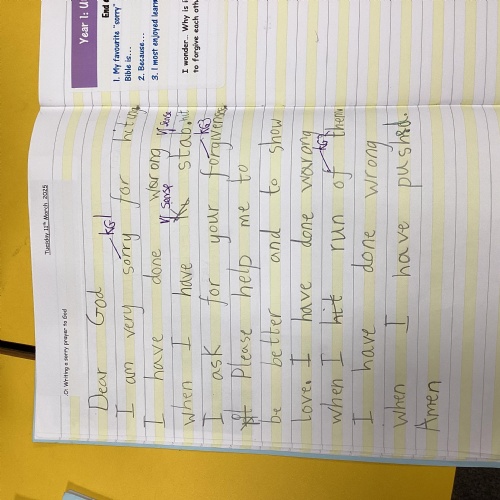 Year 1: U
End o
1. My favourite "sorry"
Bible is...
2. Because...
3. I most enjoyed learn
I wonder... Why is i
to forgive each oth
Tuesday 11th March, 2025
.O. Writing a sorry prayer to God
Dear God
KG1
I am very sorry for hiting
I have done warong
V sense
when I have stab. hit
V sense
I ask for your forgiveness.
KG3
Please help me to
be better and to show
Love. I have done warong
when I hit run of them
KG3
I have done wrong
When I have pushed.
Amen